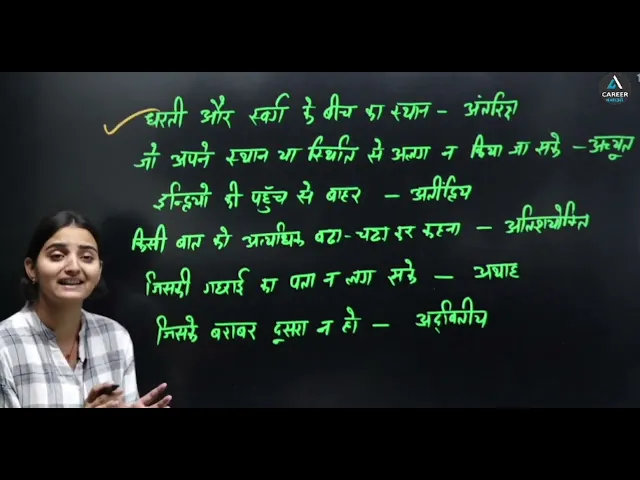 CAREER
धरती और स्वर्ग के बीच का स्थान - अंतरिक्ष
जो अपने स्थान या स्थिति से अलग न किया जा सके - अच्यूत
इन्द्रियो की पहुँच से बाहर - अतींद्रिय
किसी बात को अत्यधिक बढा-चढा कर कहना - अतिशयोक्ति
जिसकी गहराई का पता न लग सके - अथाह
जिसके बराबर दूसरा न हो - अद्वितीय